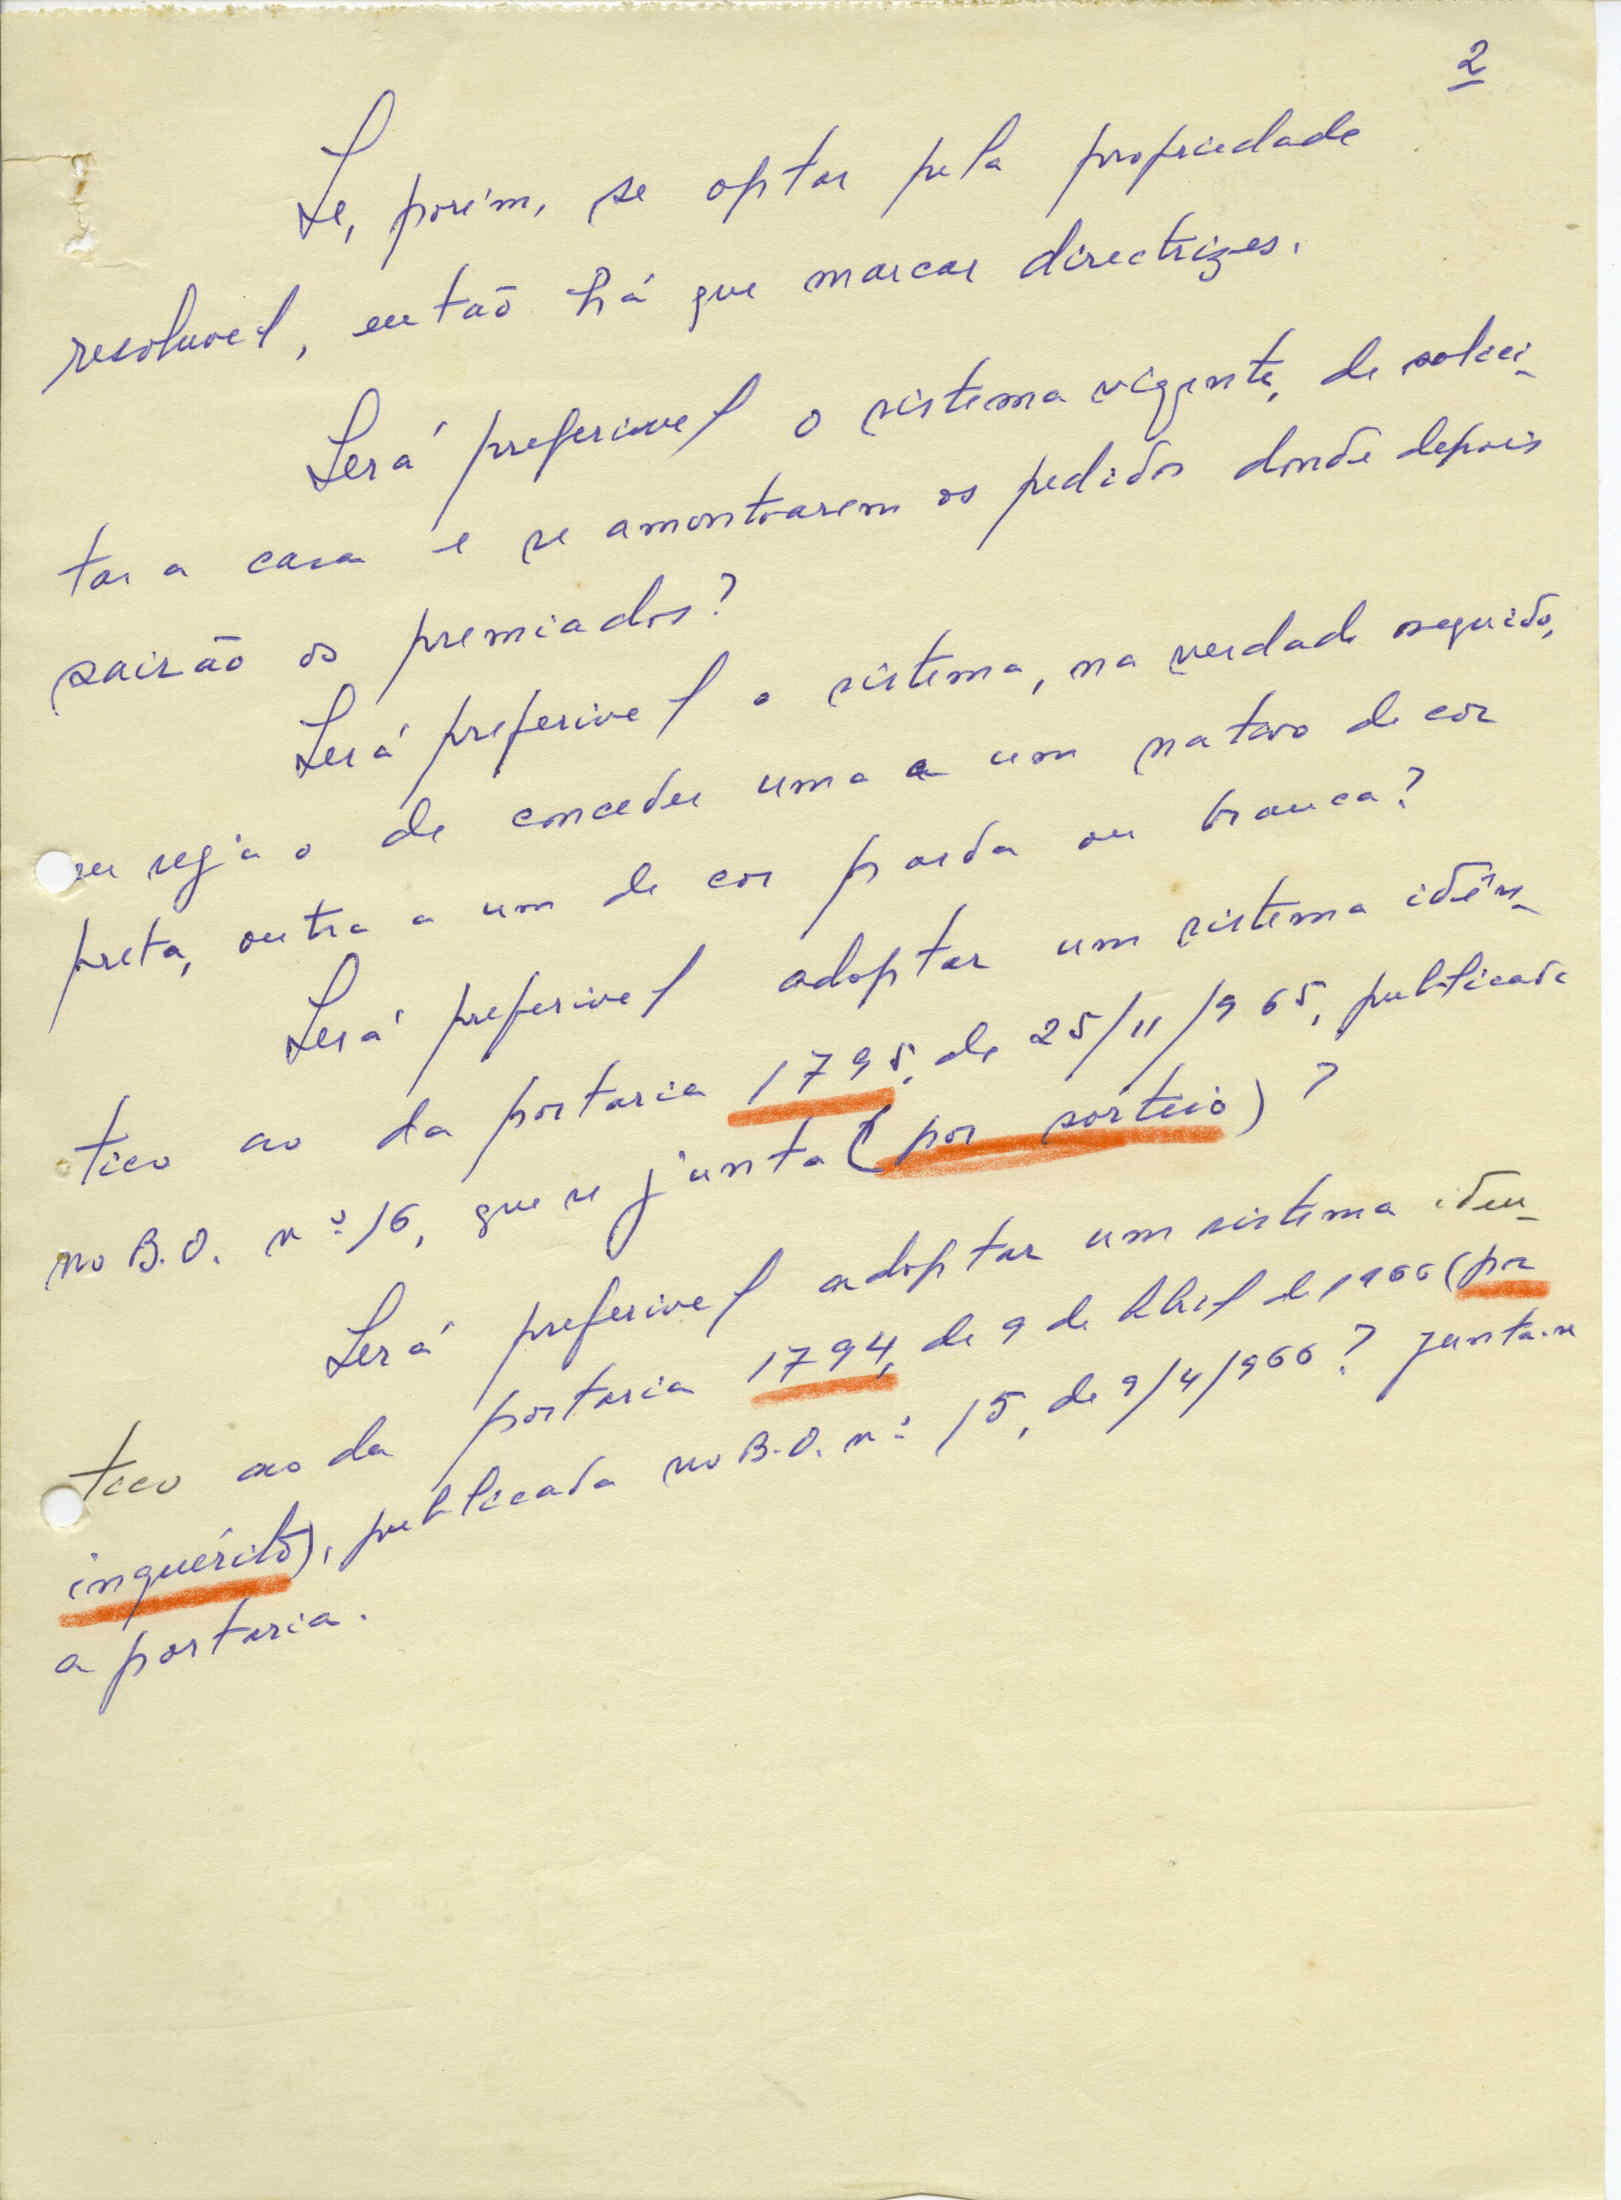 2
Se, porém, se optar pela propriedade
resoluvel, então há que marcar directrizes.
Será preferivel o sistema vigente, de solici-
tar a casa e se amontoarem os pedidos donde depois
sairão os premiados?
Será preferivel o sistema, na verdade seguido,
ou seja o de conceder uma a um nativo de cor
preta, outra a um de cor parda ou branca?
Será preferivel adoptar um sistema idên-
tico ao da portaria 1795, de 25/11/965, publicada
no B.O. nº 16, que se junta (por sorteio)?
Será preferivel adoptar um sistema iden-
tico ao da portaria 1794, de 9 de Abril de 1966 (por
inquérito), publicada no B.O. nº 15, de 9/4/966? Junta-se
a portaria.